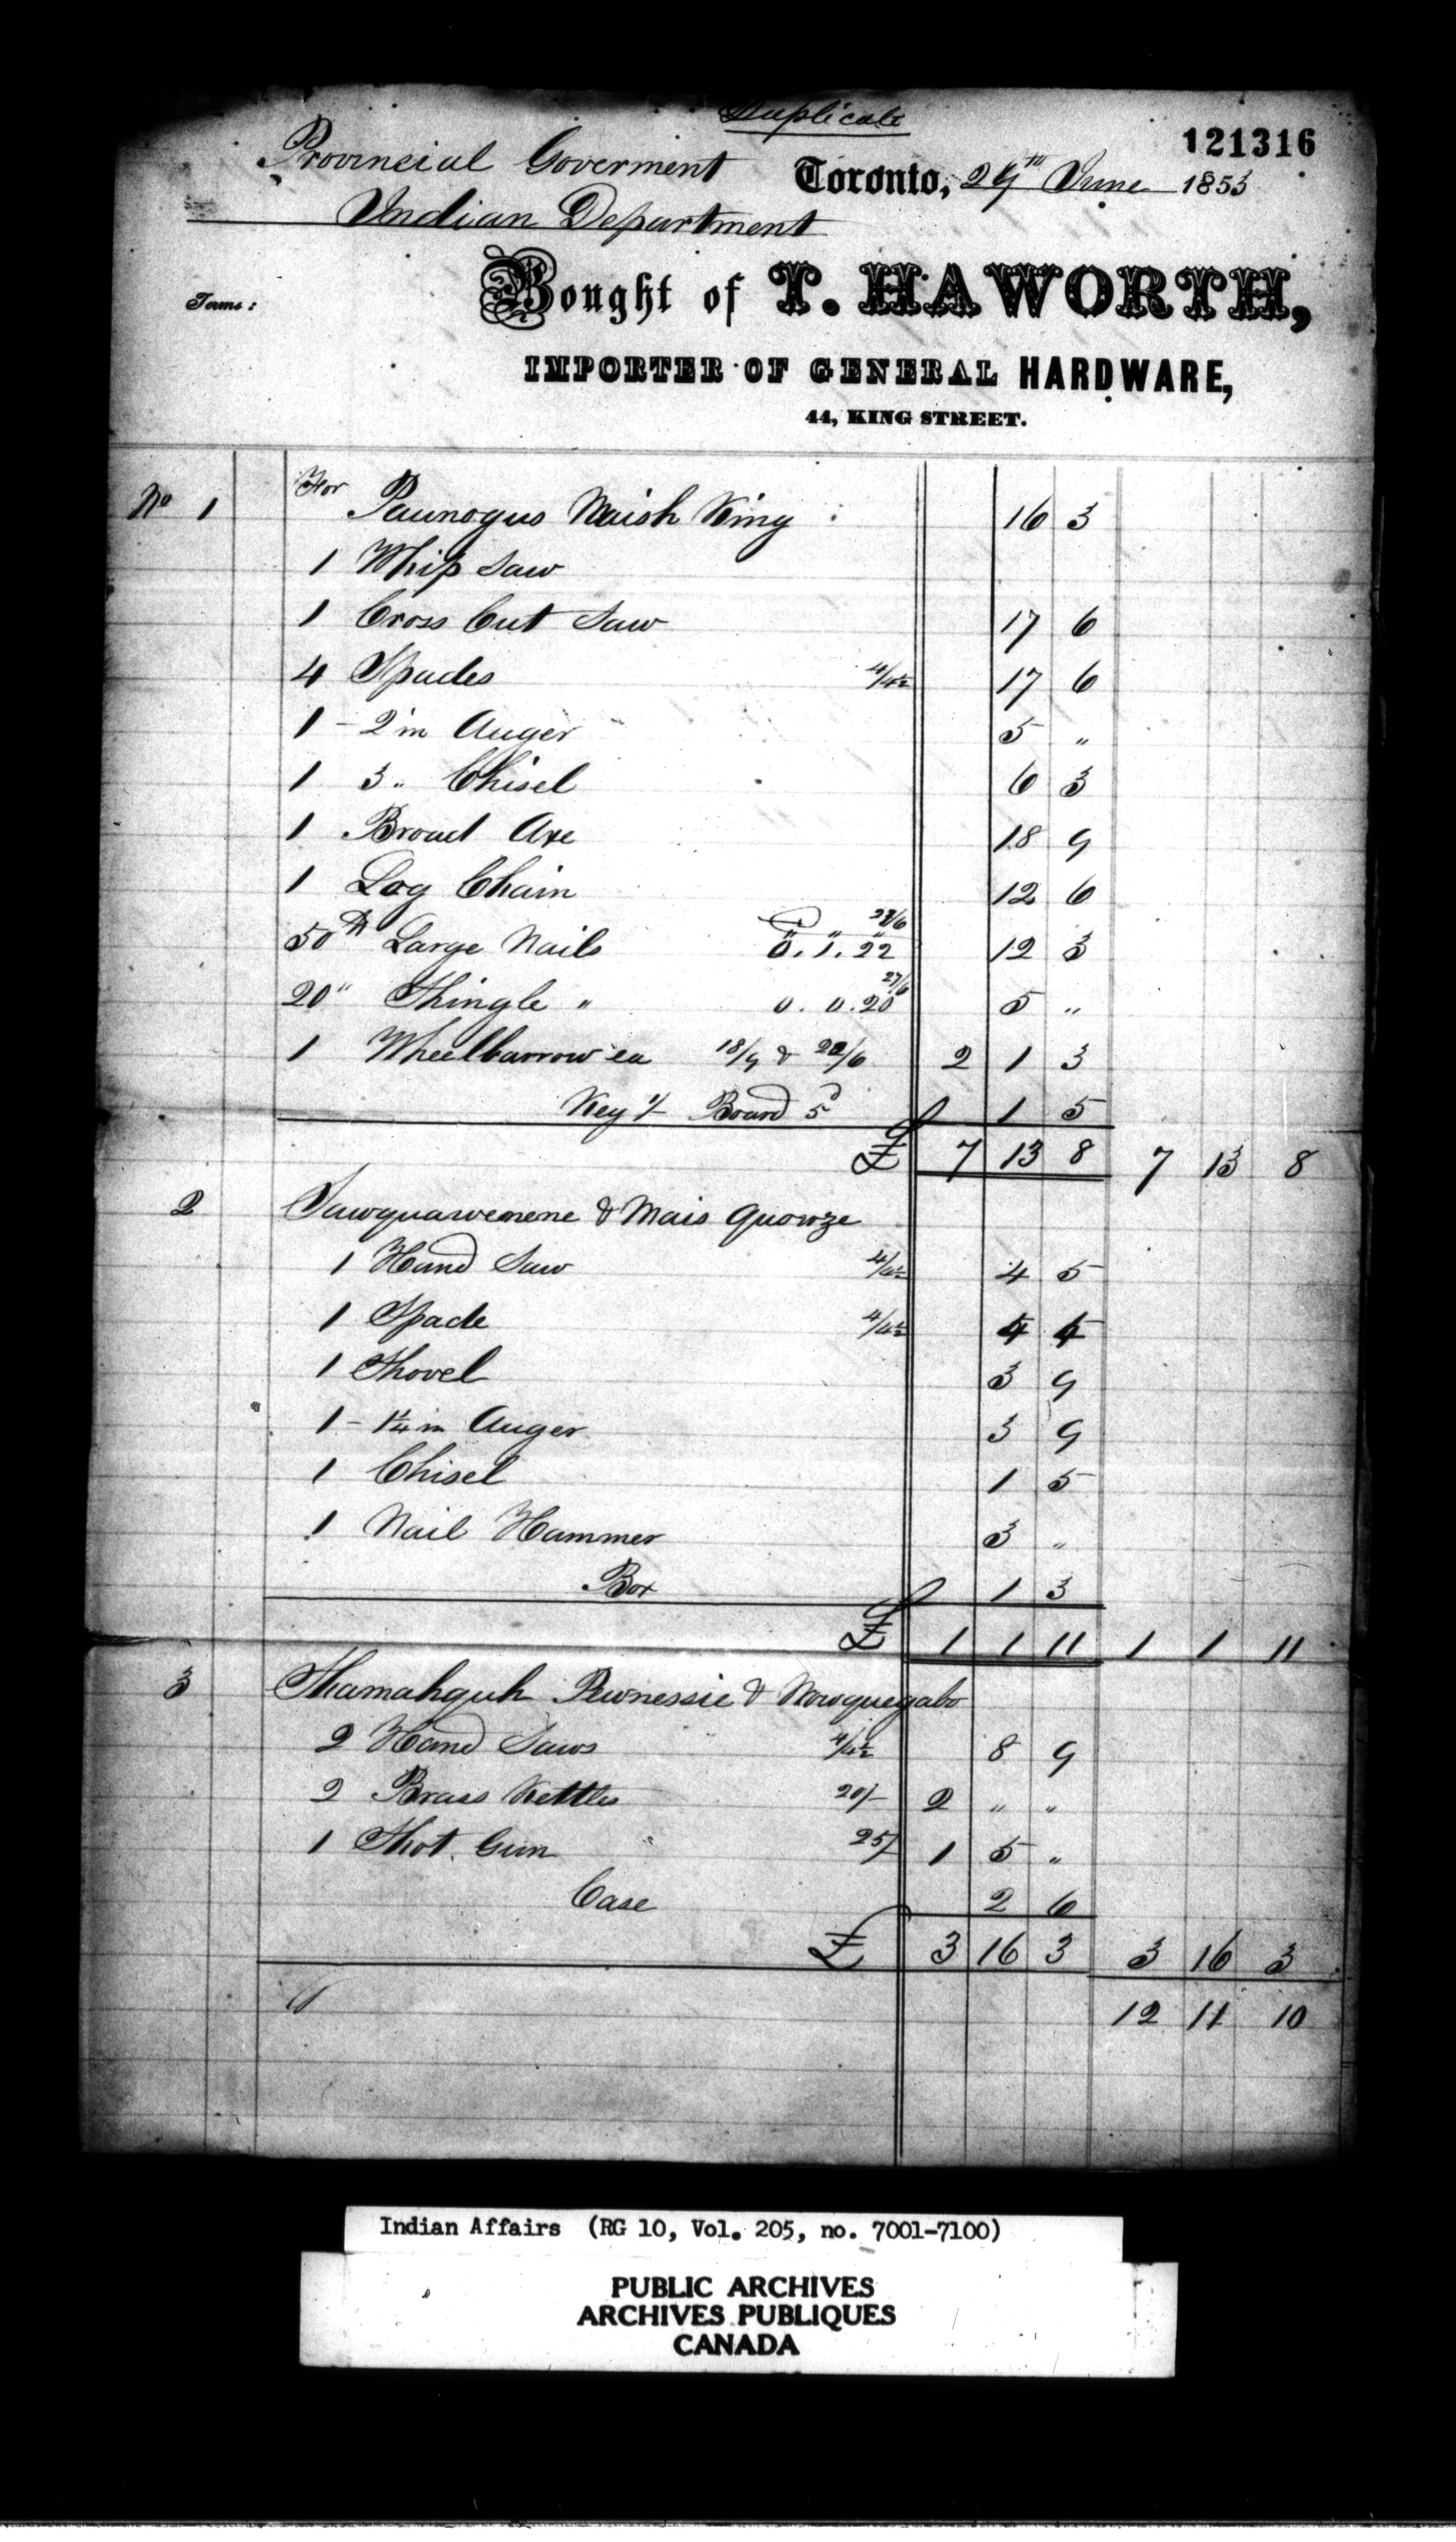 Duplicate
121316
Provincial Goverment Toronto, 29th June 1853
Indian Department
Terms: Bought of T. HAWORTH,
IMPORTER OF GENERAL HARDWARE,
44, KING STREET.
No 1 For Paunogus Naish King 16 3
1 Whip Saw
1 Cross Cut Saw 17 6
4 Spades 4/4½ 17 6
1 - 2 in Auger 5 "
1 3 " Chisel 6 3
1 Broad Axe 18 9
1 Log Chain 12 6
50 lb Large Nails 0. 1. 22 27/6 12 3
20 " Shingle " 0. 0. 20 27/6 5 "
1 Wheelbarrow ea 18/9 & 22/6 2 1 3
Keg 1/- Board 5d 1 5
£ 7 13 8 7 13 8
2 Sawquawenene & Mais Quowze
1 Hand Saw 4/4½ 4 5
1 Spade 4/4½ 4 4
1 Shovel 3 9
1 - 1¼ in Auger 3 9
1 Chisel 1 5
1 Nail Hammer 3 "
Box 1 3
£ 1 1 11 1 1 11
3 Shamahguh Pewnessie & Nowquegabo
2 Hand Saws 4/4½ 8 9
2 Brass Kettles 20/- 2 " "
1 Shot Gun 25/ 1 5 "
Case 2 6
£ 3 16 3 3 16 3
12 11 10
Indian Affairs (RG 10, Vol. 205, no. 7001-7100)
PUBLIC ARCHIVES
ARCHIVES PUBLIQUES
CANADA